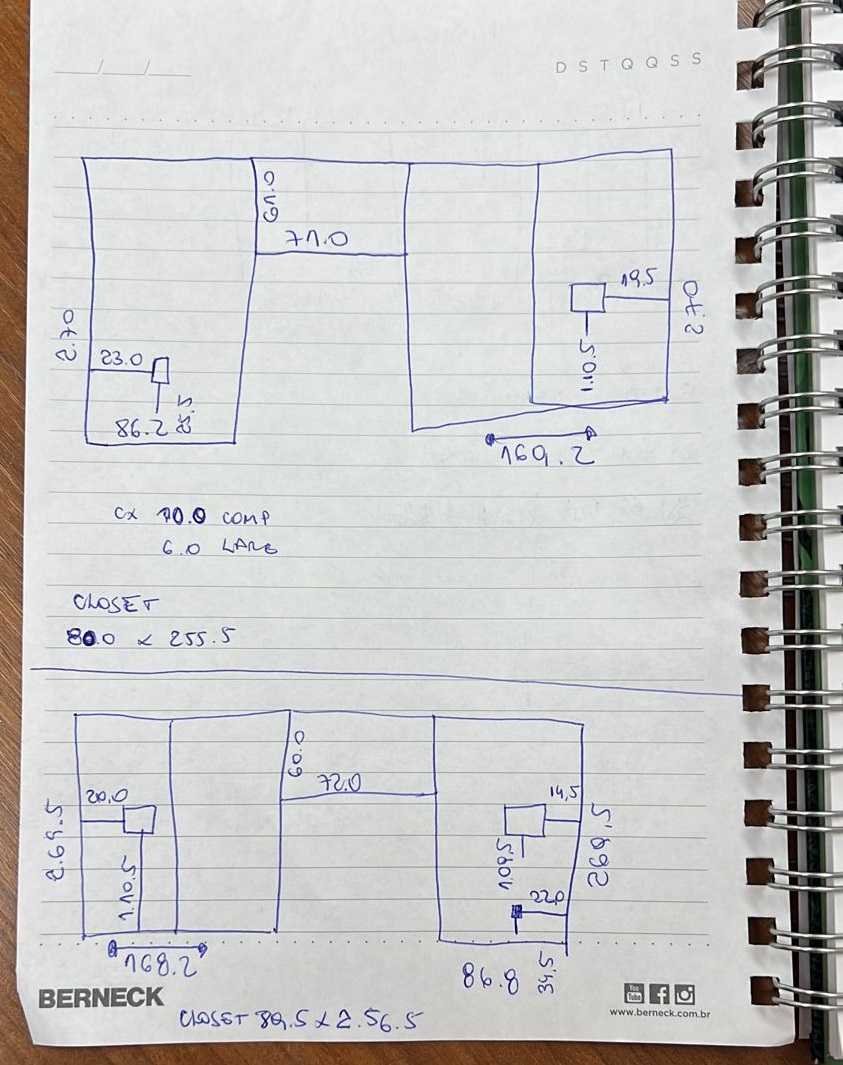 D S T Q Q S S
71.0
19.5
2.70
2.70
23.0
1.10.5
86.2
169.2
CX 10.0 COMP
6.0 LARG
CLOSET
80.0 x 255.5
60.0
72.0
20.0
14,5
2.69.5
266,5
1.10.5
1.09.5
22.0
168.2
86.8
34.5
BERNECK
You Tube
www.berneck.com.br
CLOSET 89.5 x 2.56.5